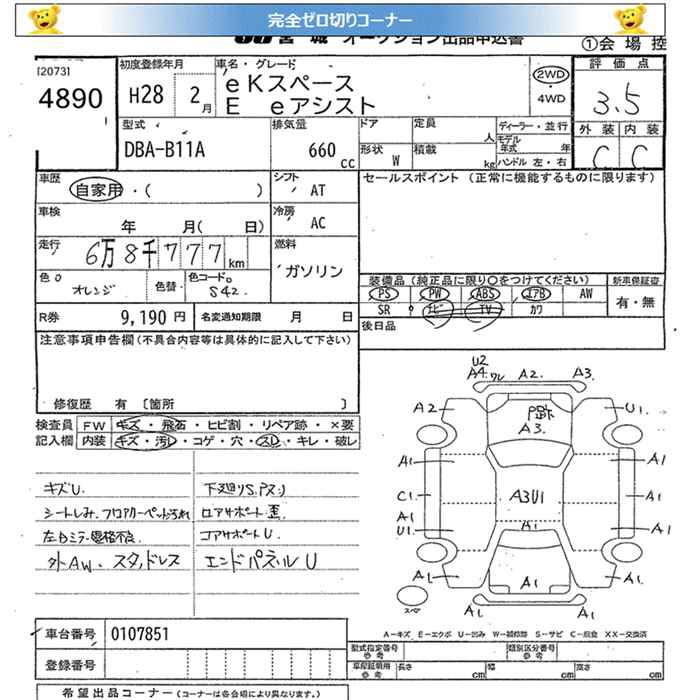 完全ゼロ切りコーナー
宮城 オークション出品申込書 ①会場控
[2073]
4890
初度登録年月
H28 2月
車名・グレード
eKスペース
E eアシスト
2WD
・
4WD
評価点
3.5
外装 内装
C C
型式
DBA-B11A
排気量
660 cc
ドア 定員 人
形状 W 積載 kg
ディーラー・並行
モデル年式 年
ハンドル 左・右
車歴
自家用・( )
シフト
AT
セールスポイント (正常に機能するものに限ります)
車検
年 月( 日)
冷房
AC
走行
6万8千777km
燃料
ガソリン
色
オレンジ
色替
色コードNo
S42.
装備品(純正品に限り○をつけてください)
PS PW ABS エアB AW
SR ナビ TV カワ
新車保証書
有・無
R券 9,190円
名変通知期限 月 日
後日品
注意事項申告欄(不具合内容等は具体的に記入して下さい)
修復歴 有 〔箇所 〕
検査員
記入欄
FW キズ・飛石・ヒビ割・リペア跡・×要
内装 キズ・汚レ・コゲ・穴・スレ・キレ・破レ
キズU.
シートしみ.フロアカーペット汚れ
左Dミラー電格不良.
外AW、スタッドレス
下廻りS.Pヌリ
ロアサポート歪
コアサポートU.
エンドパネルU
U2
A4ワレ A2. A3.
A2 P跡 U1
A3.
A1 A1
C1 A3U1 A1
A1
U1 A1 A1
A1 A1 A1
スペア A1
A-キズ E-エクボ U-凹み W-補修跡 S-サビ C-腐食 XX-交換済
車台番号 0107851
登録番号
型式指定番号
参考
類別区分番号
参考
車庫証明用
参考
長さ cm 幅 cm 高さ cm
希望出品コーナー(コーナーは各会場により異なります。)